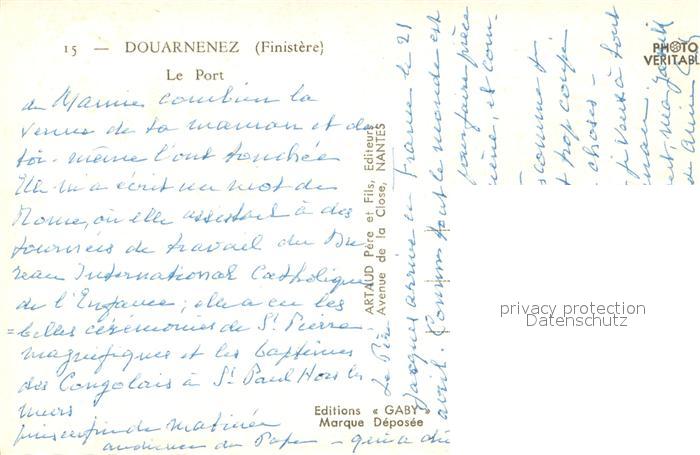 15 — DOUARNENEZ (Finistère)
Le Port
PHOTO
VERITABL
de Mamie combien la
venue de ta maman et de
toi-même l'ont touchée
Elle m'a écrit un mot de
Rome, où elle assistait à des
journées de travail du Bu
reau International Catholique
de l'Enfance ; elle a eu les
belles cérémonies de St Pierre
magnifiques et les baptêmes
des Congolais à St Paul Hors les
murs
puis enfin de matinée
audience du Pape -
ARTAUD Père et Fils, Editeurs
Avenue de la Close, NANTES
Le Père
Jacques arrive en France le 21
avril. Comme tout le monde est
pour faire pièce
et com-
comme
trop
choses -
à tout
Editions « GABY »
Marque Déposée
privacy protection
Datenschutz